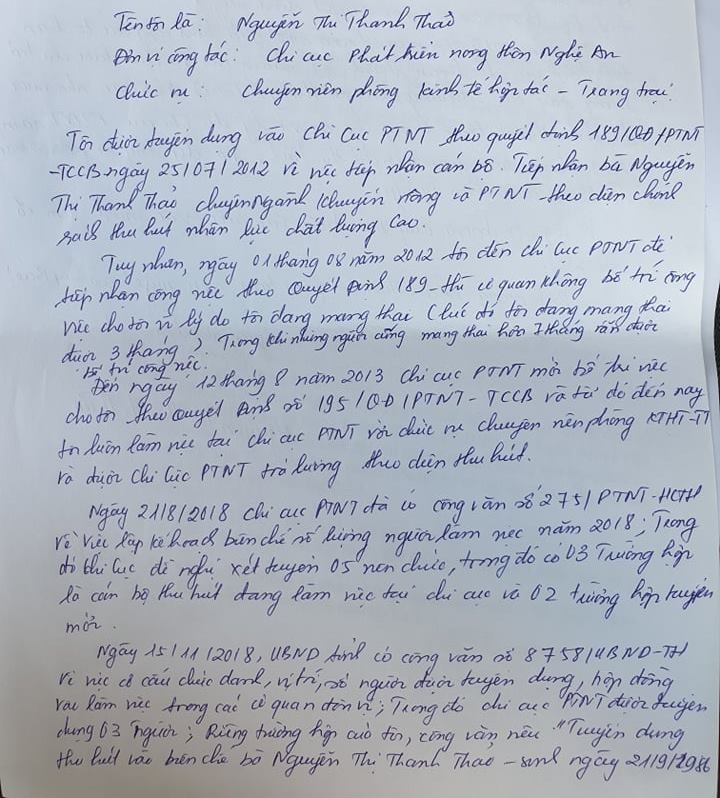 Tên tôi là: Nguyễn Thị Thanh Thảo
Đơn vị công tác: Chi cục Phát triển nông thôn Nghệ An
Chức vụ: Chuyên viên phòng kinh tế hợp tác - Trang trại
Tôi được tuyển dụng vào Chi Cục PTNT theo quyết định 189/QĐ/PTNT
-TCCB ngày 25/07/2012 về việc tiếp nhận cán bộ. Tiếp nhận bà Nguyễn
Thị Thanh Thảo chuyên Ngành khuyến nông và PTNT theo diện chính
sách thu hút nhân lực chất lượng cao.
Tuy nhiên, ngày 01 tháng 08 năm 2012 tôi đến chi cục PTNT để
tiếp nhận công việc theo Quyết Định 189 thì cơ quan không bố trí công
việc cho tôi vì lý do tôi đang mang thai (lúc đó tôi đang mang thai
được 3 tháng). Trong khi những người cũng mang thai hơn 7 tháng vẫn được
bố trí công việc.
Đến ngày 12 tháng 8 năm 2013 chi cục PTNT mới bố trí việc
cho tôi theo Quyết Định số 195/QĐ/PTNT-TCCB và từ đó đến nay
tôi luôn làm việc tại chi cục PTNT với chức vụ chuyên viên phòng KTHT-TT
và được Chi Cục PTNT trả lương theo diện thu hút.
Ngày 21/8/2018 chi cục PTNT đã có công văn số 275/PTNT-HCTH
về việc lập kế hoạch biên chế số lượng người làm việc năm 2018; Trong
đó chi cục đề nghị xét tuyển 05 viên chức, trong đó có 03 Trường hợp
là cán bộ thu hút đang làm việc tại chi cục và 02 trường hợp tuyển
mới.
Ngày 15/11/2018, UBND tỉnh có công văn số 8758/UBND-TH
về việc cơ cấu chức danh, vị trí, số người được tuyển dụng, hợp đồng
vào làm việc trong các cơ quan đơn vị; Trong đó chi cục PTNT được tuyển
dụng 03 người; Riêng trường hợp của tôi, công văn nêu "Tuyển dụng
thu hút vào biên chế bà Nguyễn Thị Thanh Thảo - sinh ngày 21/9/1986